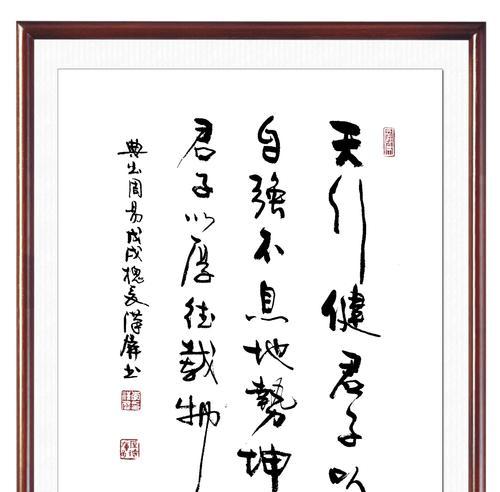 天行健君子以
自強不息地勢坤
君子以厚德載物
典出周易戊戌槐夏漢屏书